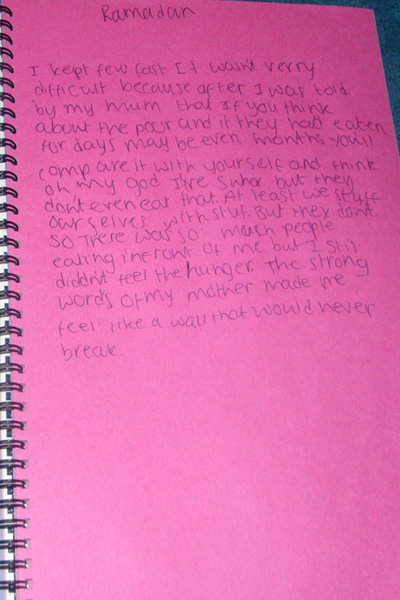 Ramadan
I kept few fast It wasnt verry
difficult because after I was told
by my mum that If you think
about the poor and if they had eaten
for days may be even months you'll
compare it with yourself and think
oh my god I've suhor but they
dont even eat that. At least we stuff
ourselves with stuf. But they dont.
So There was so much people
eating infront of me but I Still
didn't feel the hunger. The strong
words of my mother made me
feel like a wall that would never
break.